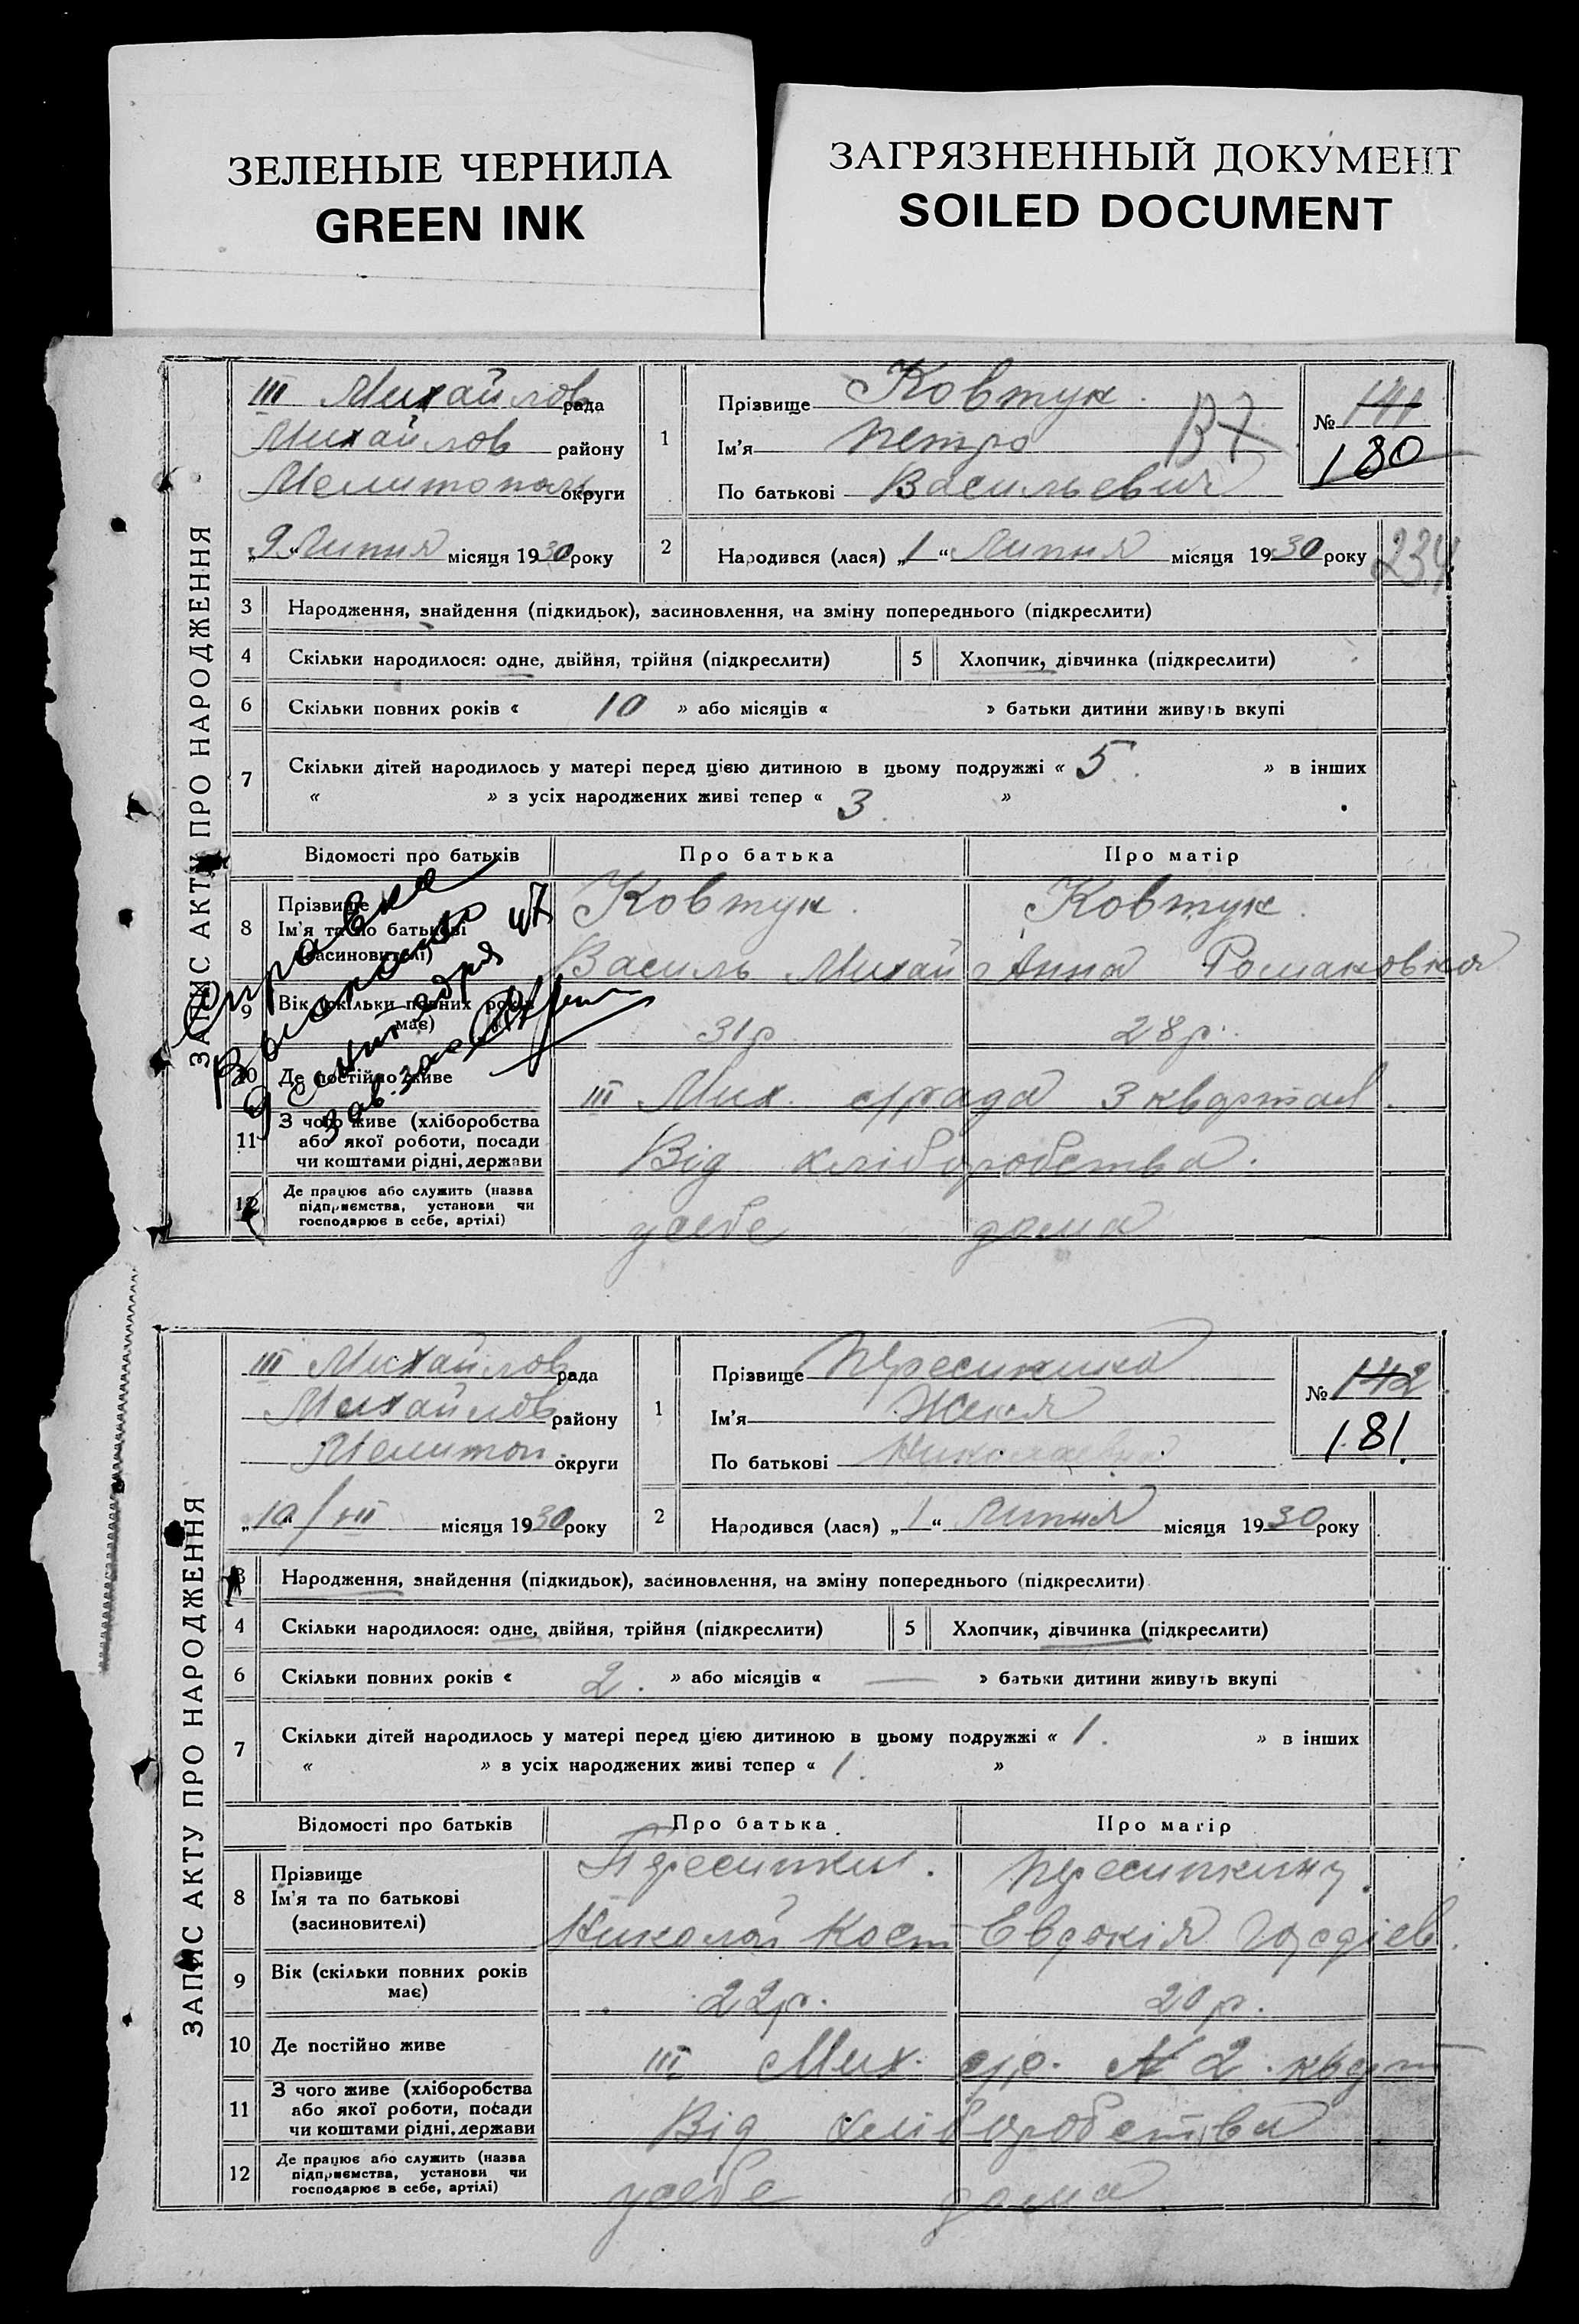 ЗЕЛЕНЫЕ ЧЕРНИЛА
GREEN INK
ЗАГРЯЗНЕННЫЙ ДОКУМЕНТ
SOILED DOCUMENT
ЗАПИС АКТУ ПРО НАРОДЖЕННЯ
III Михайлов рада
Михайлов району
Мелитополь округи
„9“ Липня місяця 1930 року
1
Прізвище Ковтун
Ім'я Петро
По батькові Васильевич
№ 141
180
2
Народився (лася) „1“ Липня місяця 1930 року
234
3 Народження, знайдення (підкидьок), засиновлення, на зміну попереднього (підкреслити)
4 Скільки народилося: одне, двійня, трійня (підкреслити)
5 Хлопчик, дівчинка (підкреслити)
6 Скільки повних років « 10 » або місяців « » батьки дитини живуть вкупі
7 Скільки дітей народилось у матері перед цією дитиною в цьому подружжі « 5 » в інших
« » з усіх народжених живі тепер « 3 »
Відомості про батьків Про батька Про матір
8 Прізвище Ковтун Ковтун
Ім'я та по батькові
(засиновителі) Василь Михай Анна Романовна
9 Вік (скільки повних років
має) 31 р 28 р.
10 Де постійно живе III Мих. с/рада 3 квартал
11 З чого живе (хліборобства
або якої роботи, посади
чи коштами рідні, держави Від хліборобства.
12 Де працює або служить (назва
підприємства, установи чи
господарює в себе, артілі) усебе дома
ЗАПИС АКТУ ПРО НАРОДЖЕННЯ
III Михайлов рада
Михайлов району
Мелитоп. округи
„10/VII місяця 1930 року
1
Прізвище Пересипкина
Ім'я Женя
По батькові Николаевна
№ 142
181
2
Народився (лася) „1“ Липня місяця 1930 року
3 Народження, знайдення (підкидьок), засиновлення, на зміну попереднього (підкреслити)
4 Скільки народилося: одне, двійня, трійня (підкреслити)
5 Хлопчик, дівчинка (підкреслити)
6 Скільки повних років « 2. » або місяців « — » батьки дитини живуть вкупі
7 Скільки дітей народилось у матері перед цією дитиною в цьому подружжі « 1. » в інших
« » в усіх народжених живі тепер « 1. »
Відомості про батьків Про батька Про матір
8 Прізвище Пересипкин. Пересипкину
Ім'я та по батькові
(засиновителі) Николай Кост Евдокія
9 Вік (скільки повних років
має) 22 р. 20 р.
10 Де постійно живе III Мих. с/р. № 2. кварт
11 З чого живе (хліборобства
або якої роботи, посади
чи коштами рідні, держави Від хліборобства
12 Де працює або служить (назва
підприємства, установи чи
господарює в себе, артілі) усебе дома